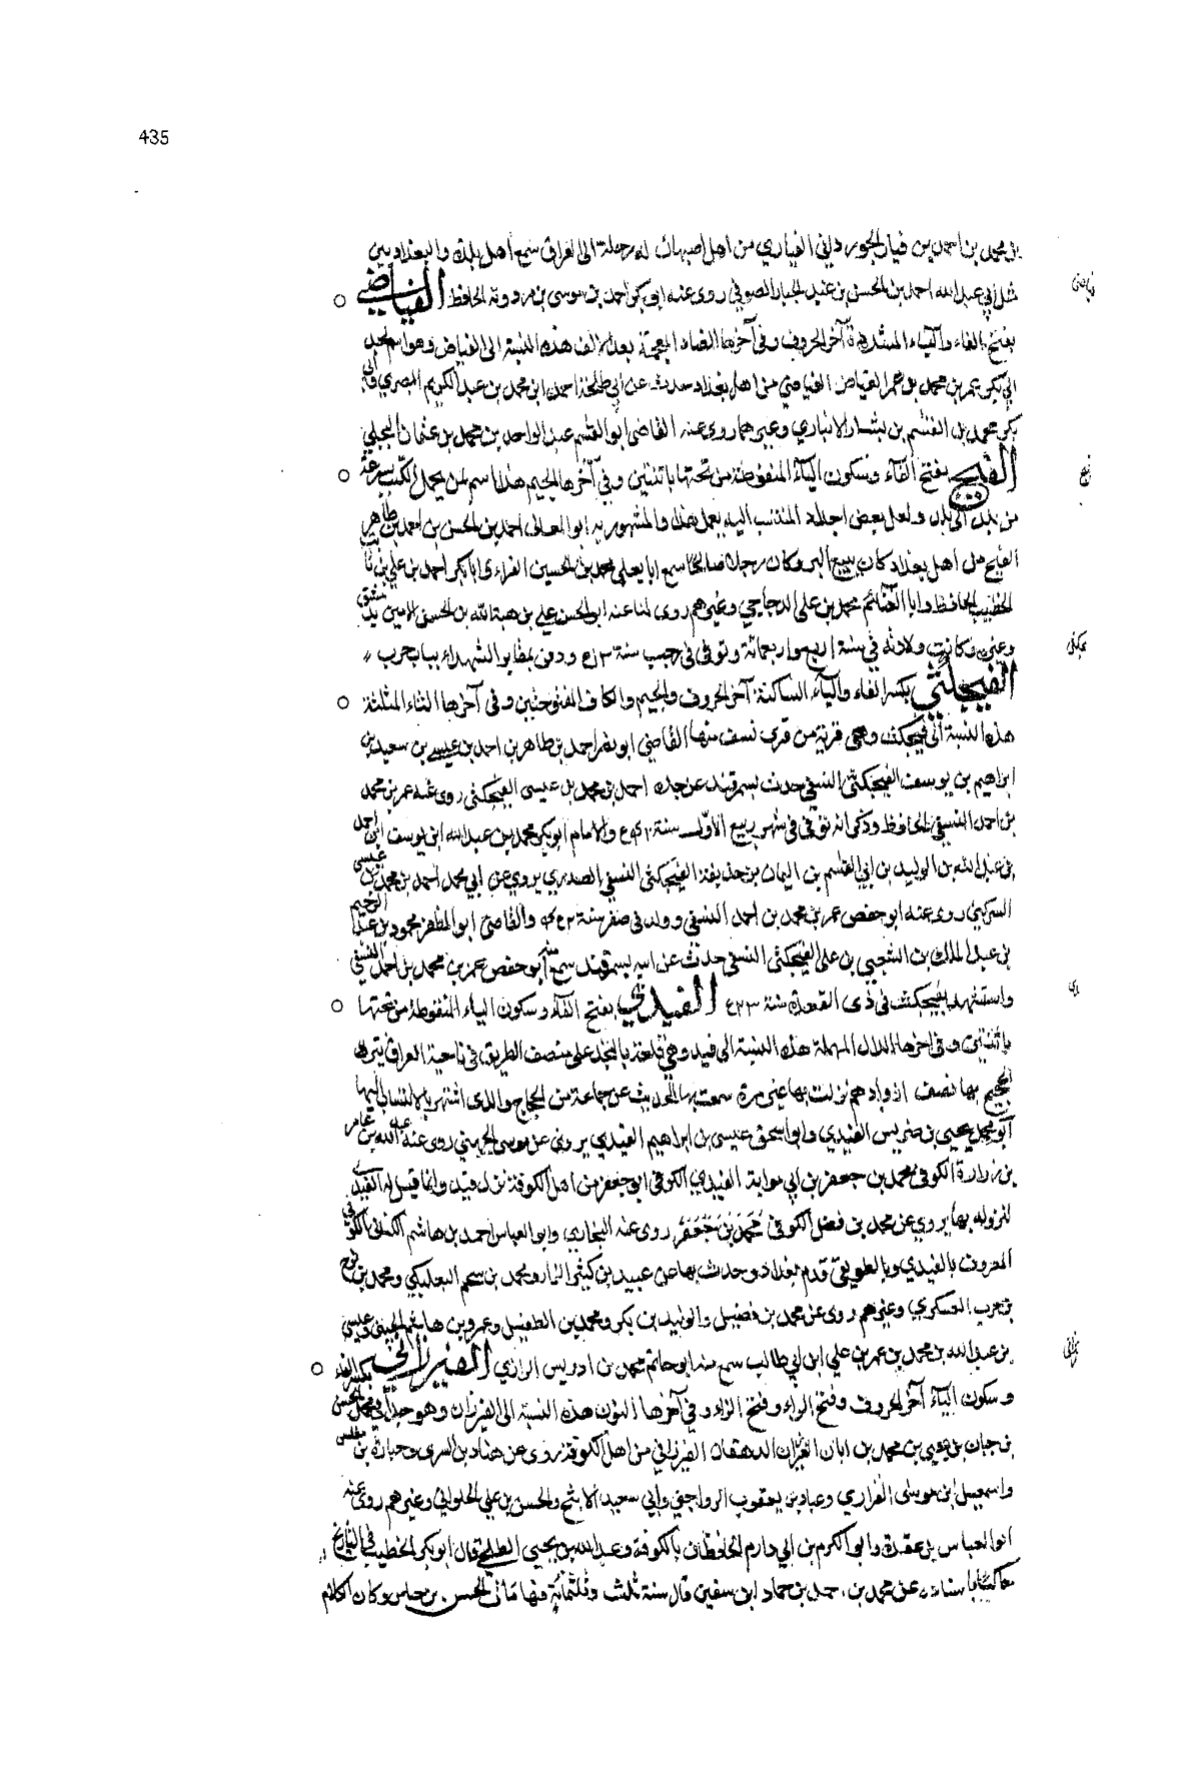 435
بن محمد بن احمد بن فيار الجورداني الفياري من اهل اصبهان له رحلة الى العراق سمع اهل بلده والبغداديين
مثل ابي عبد الله احمد بن الحسن بن عبد الجبار الصوفي روى عنه ابو بكر احمد بن موسى بن مردوية الحافظ الفياضي
فياضي
بفتح الفاء والياء المشددة آخر الحروف وفي آخرها الضاد المعجمة بعد الالف هذه النسبة الى الفياض وهو اسم لجد
ابي بكر عمر بن محمد بن عمر الفياض الفياضي من اهل بغداد حدث عن ابي طلحة احمد ابن محمد بن عبد الكريم البصري وابي
بكر محمد بن القسم بن بشار الانباري وغيرهما روى عنه القاضي ابو القسم عبد الواحد بن محمد بن عثمان البجلي
الفيج بفتح الفاء وسكون الياء المنقوطة من تحتها باثنتين وفي آخرها الجيم هذا اسم لمن يحمل الكتب سرعة
من بلد الى بلد ولعل بعض اجداد المنتسب اليه يعمل هذا والمشهور به ابو المعالي احمد بن الحسن بن احمد بن طاهر
الفيج من اهل بغداد كان يبيع البر وكان رجلا صالحا سمع ابا يعلى محمد بن الحسين الفراء وابا بكر احمد بن علي بن ثابت
الخطيب الحافظ وابا الغنائم محمد بن علي الدجاجي وغيرهم روى لنا عنه ابو الحسن علي بن هبة الله بن الحسن الامين بدمشق
وغيره وكانت ولادته في سنة اربع واربعمائة وتوفي في رجب سنة ودفن بمقابر الشهداء بباب حرب
الفيجكثي بكسر الفاء والياء الساكنة آخر الحروف والجيم والكاف المفتوحتين وفي آخرها الثاء المثلثة
هذه النسبة الى فيجكث وهي قرية من قرى نسف منها القاضي ابو نصر احمد بن طاهر بن احمد بن عيسى بن سعيد بن
ابراهيم بن يوسف الفيجكثي النسفي حدث بسمرقند عن جده احمد بن محمد بن عيسى الفيجكثي روى عنه عمر بن محمد
بن احمد النسفي الحافظ وذكر انه توفي في شهر ربيع الاول سنة والامام ابو بكر محمد بن عبد الله ابن يوسف ابن احمد
بن عبد الله بن الوليد بن ابي القاسم بن اليمان بن حذيفة الفيجكثي النسفي يروي عن ابي محمد احمد بن محمد بن عيسى
روى عنه ابو حفص عمر بن محمد بن احمد النسفي وولد في صفر سنة والقاضي ابو المظفر محمود بن عبد الرحيم
بن عبد الملك بن علي الفيجكثي النسفي حدث عن ابيه بسمرقند سمع منه ابو حفص عمر بن محمد بن احمد النسفي
واستشهد بفيجكث في ذي القعدة سنة الفيدي بفتح الفاء وسكون الياء المنقوطة من تحتها
باثنتين وفي آخرها الدال المهملة هذه النسبة الى فيد وهي قلعة بالنجد على منتصف الطريق في ناحية العراق يترك
الحجيج بها نصف ازوادهم نزلت بها غير مرة سمعت بها الحديث عن جماعة من الحجاج والذي اشتهر بالانتساب اليها
ابو محمد يحيى بن ضريس الفيدي وابو اسحق عيسى بن ابراهيم الفيدي يروي عن موسى الجهني روى عنه عبد الله بن عامر
بن زرارة الكوفي ومحمد بن جعفر بن ابي مواتية الفيدي الكوفي ابو جعفر من اهل الكوفة نزل فيد وانما قيل له الفيدي
لنزوله بها يروي عن محمد بن فضل الكوفي محمد بن جعفر روى عنه البخاري وابو العباس احمد بن هاشم الكناني الكوفي
المعروف بالفيدي وبالطريقي قدم بغداد وحدث بها عن عبيد بن كثير التمار ومحمد بن سهم البعلبكي ومحمد بن نوح
بن حرب العسكري وغيرهم روى عن محمد بن فضيل والوليد بن بكر ومحمد بن الطفيل وعمرو بن هاشم الجنبي وعيسى
بن عبد الله بن محمد بن عمر بن علي ابن ابي طالب سمع منه ابو حاتم محمد بن ادريس الرازي الفيرزاني بكسر الفاء
وسكون الياء آخر الحروف وفتح الراء وفتح الزاء وفي آخرها النون هذه النسبة الى الفيرزان وهو جد ابي محمد الحسن
بن حباش بن يحيى بن محمد بن ابان الفيرزان الدهقان الفيرزاني من اهل الكوفة روى عن هناد بن السري وجبارة بن مغلس
واسمعيل ابن موسى الفزاري وعباد بن يعقوب الرواجني وابي سعيد الاشج والحسن بن علي الحلواني وغيرهم روى عنه
ابو العباس بن عقدة وابو بكر بن ابي دارم الحافظان بالكوفة وعبد الله بن يحيى الطلحي قال ابو بكر الخطيب في التاريخ
باسناده عن محمد بن احمد بن حماد ابن سفين قال سنة ثلث وثلثمائة فيها مات الحسن بن حباش وكان الكلام